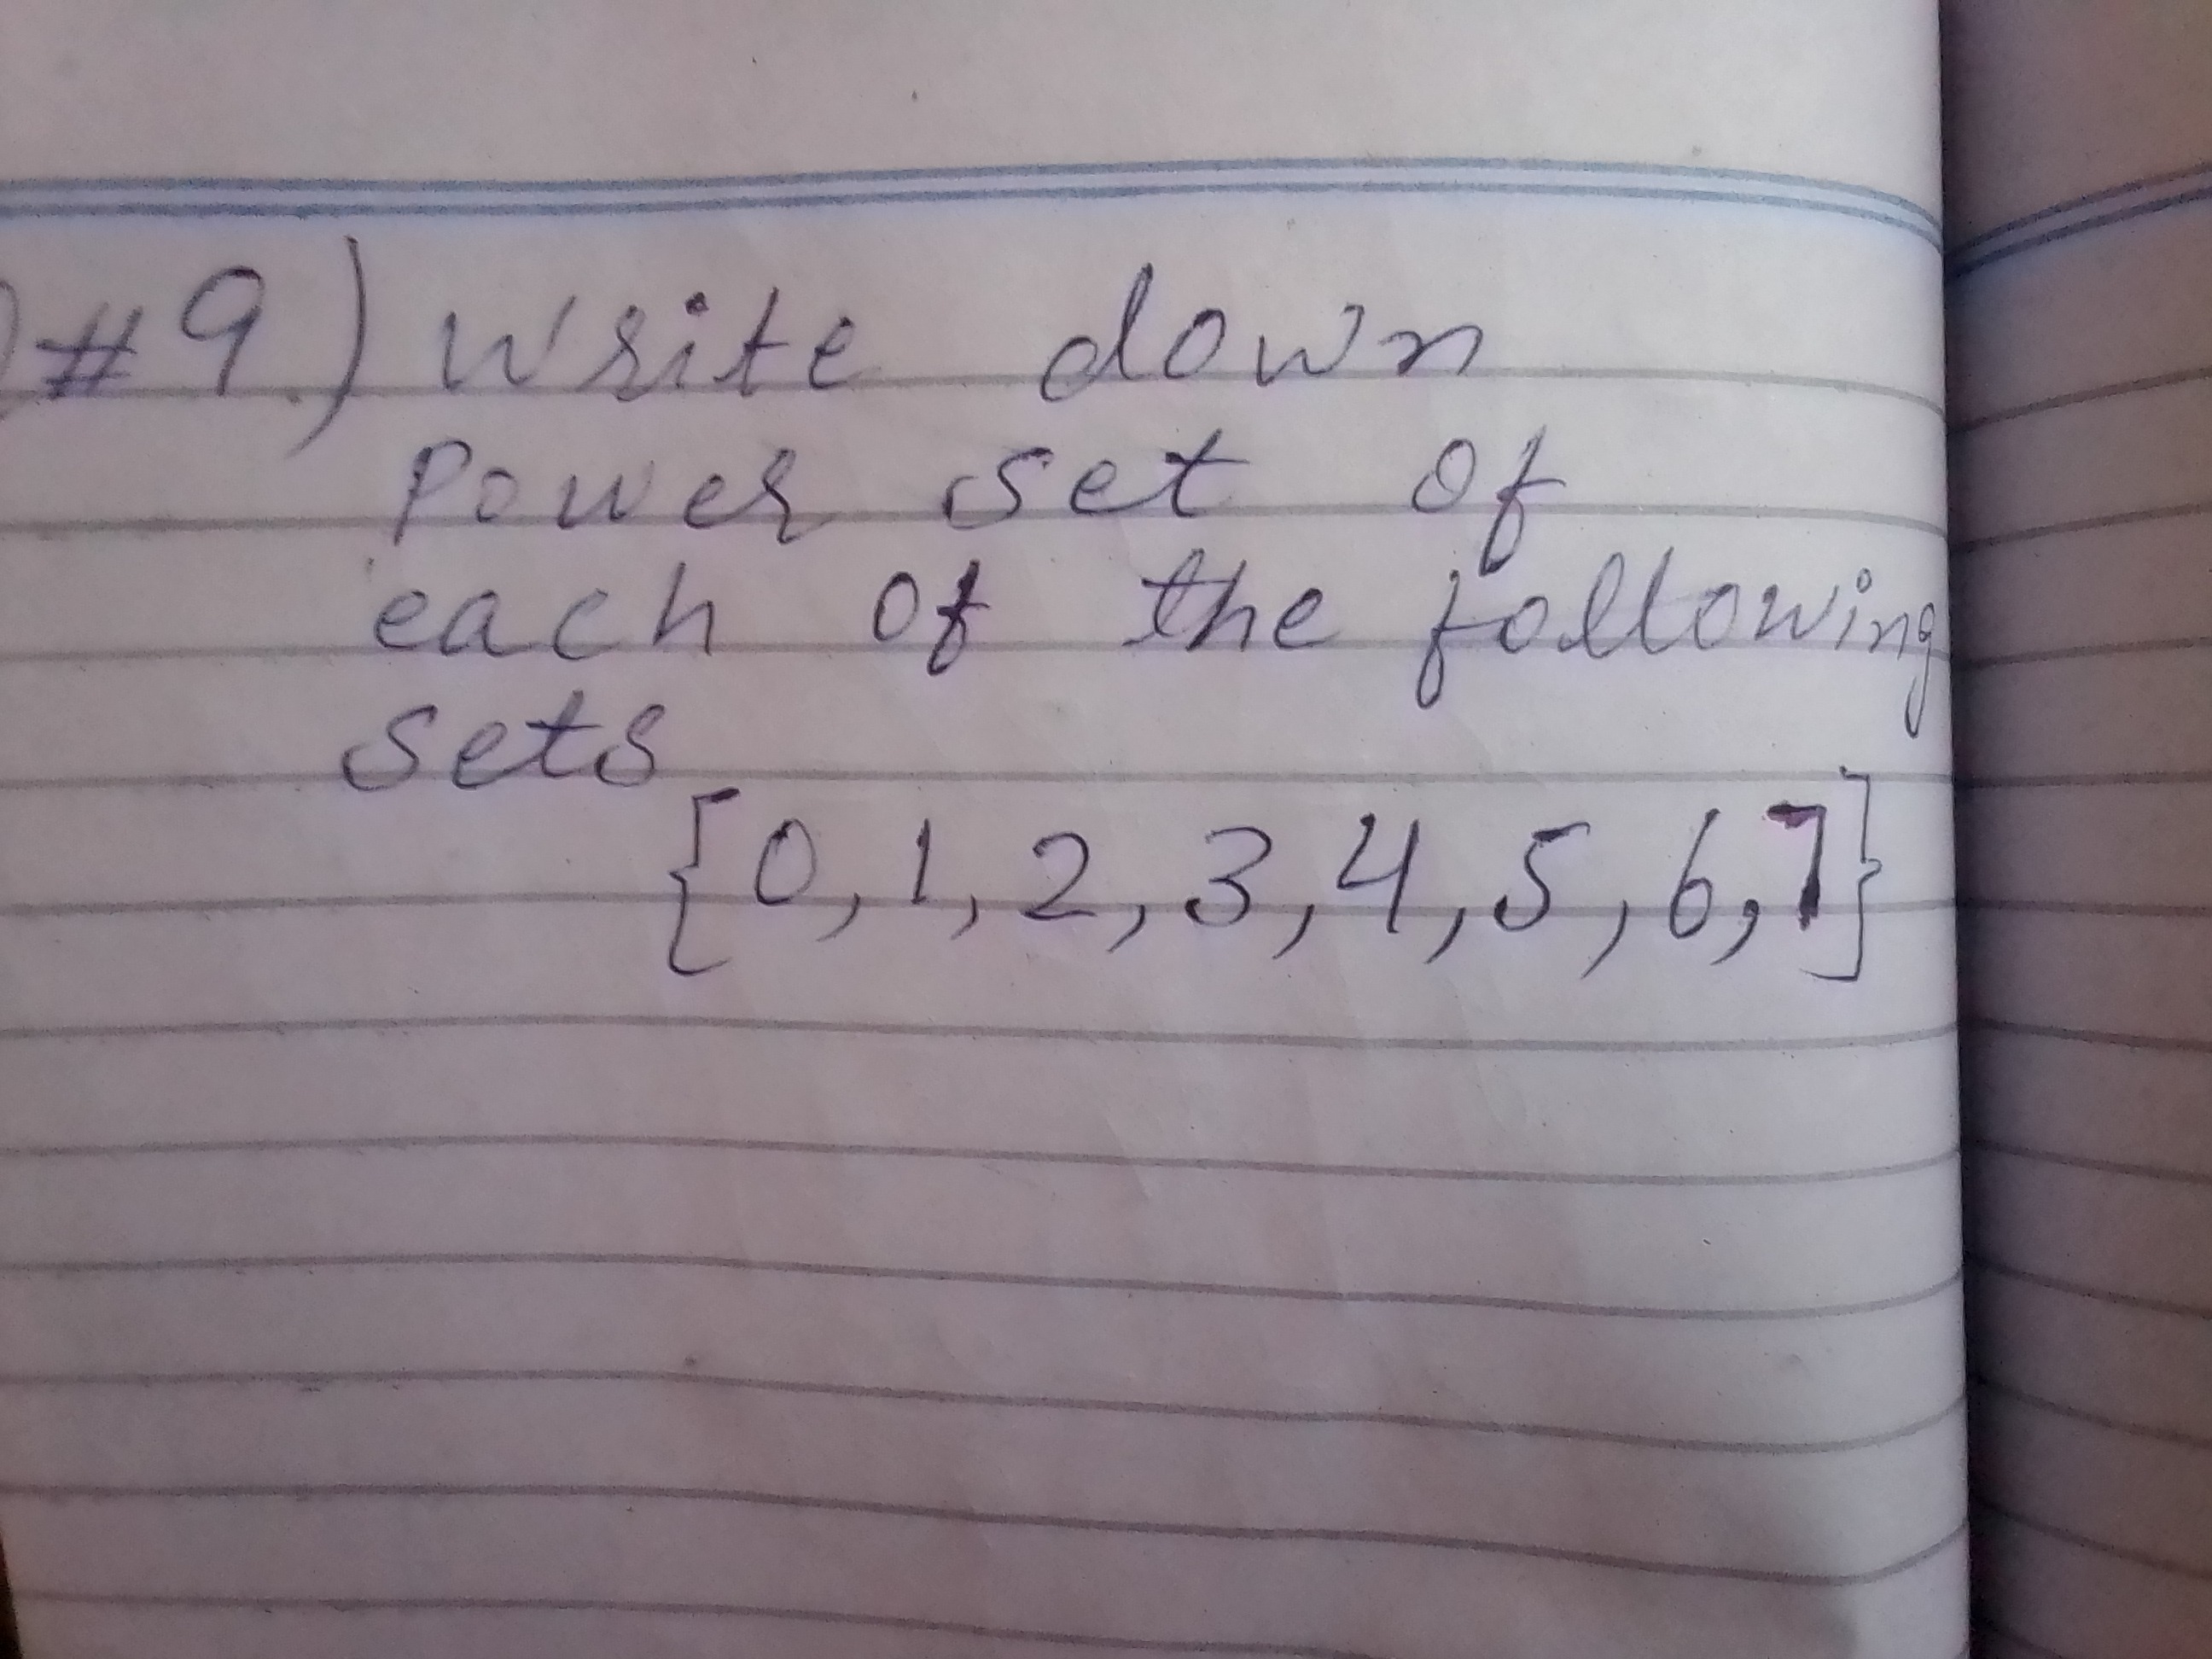 #9.) Write down
Power set of
each of the following
sets
{0,1,2,3,4,5,6,7}